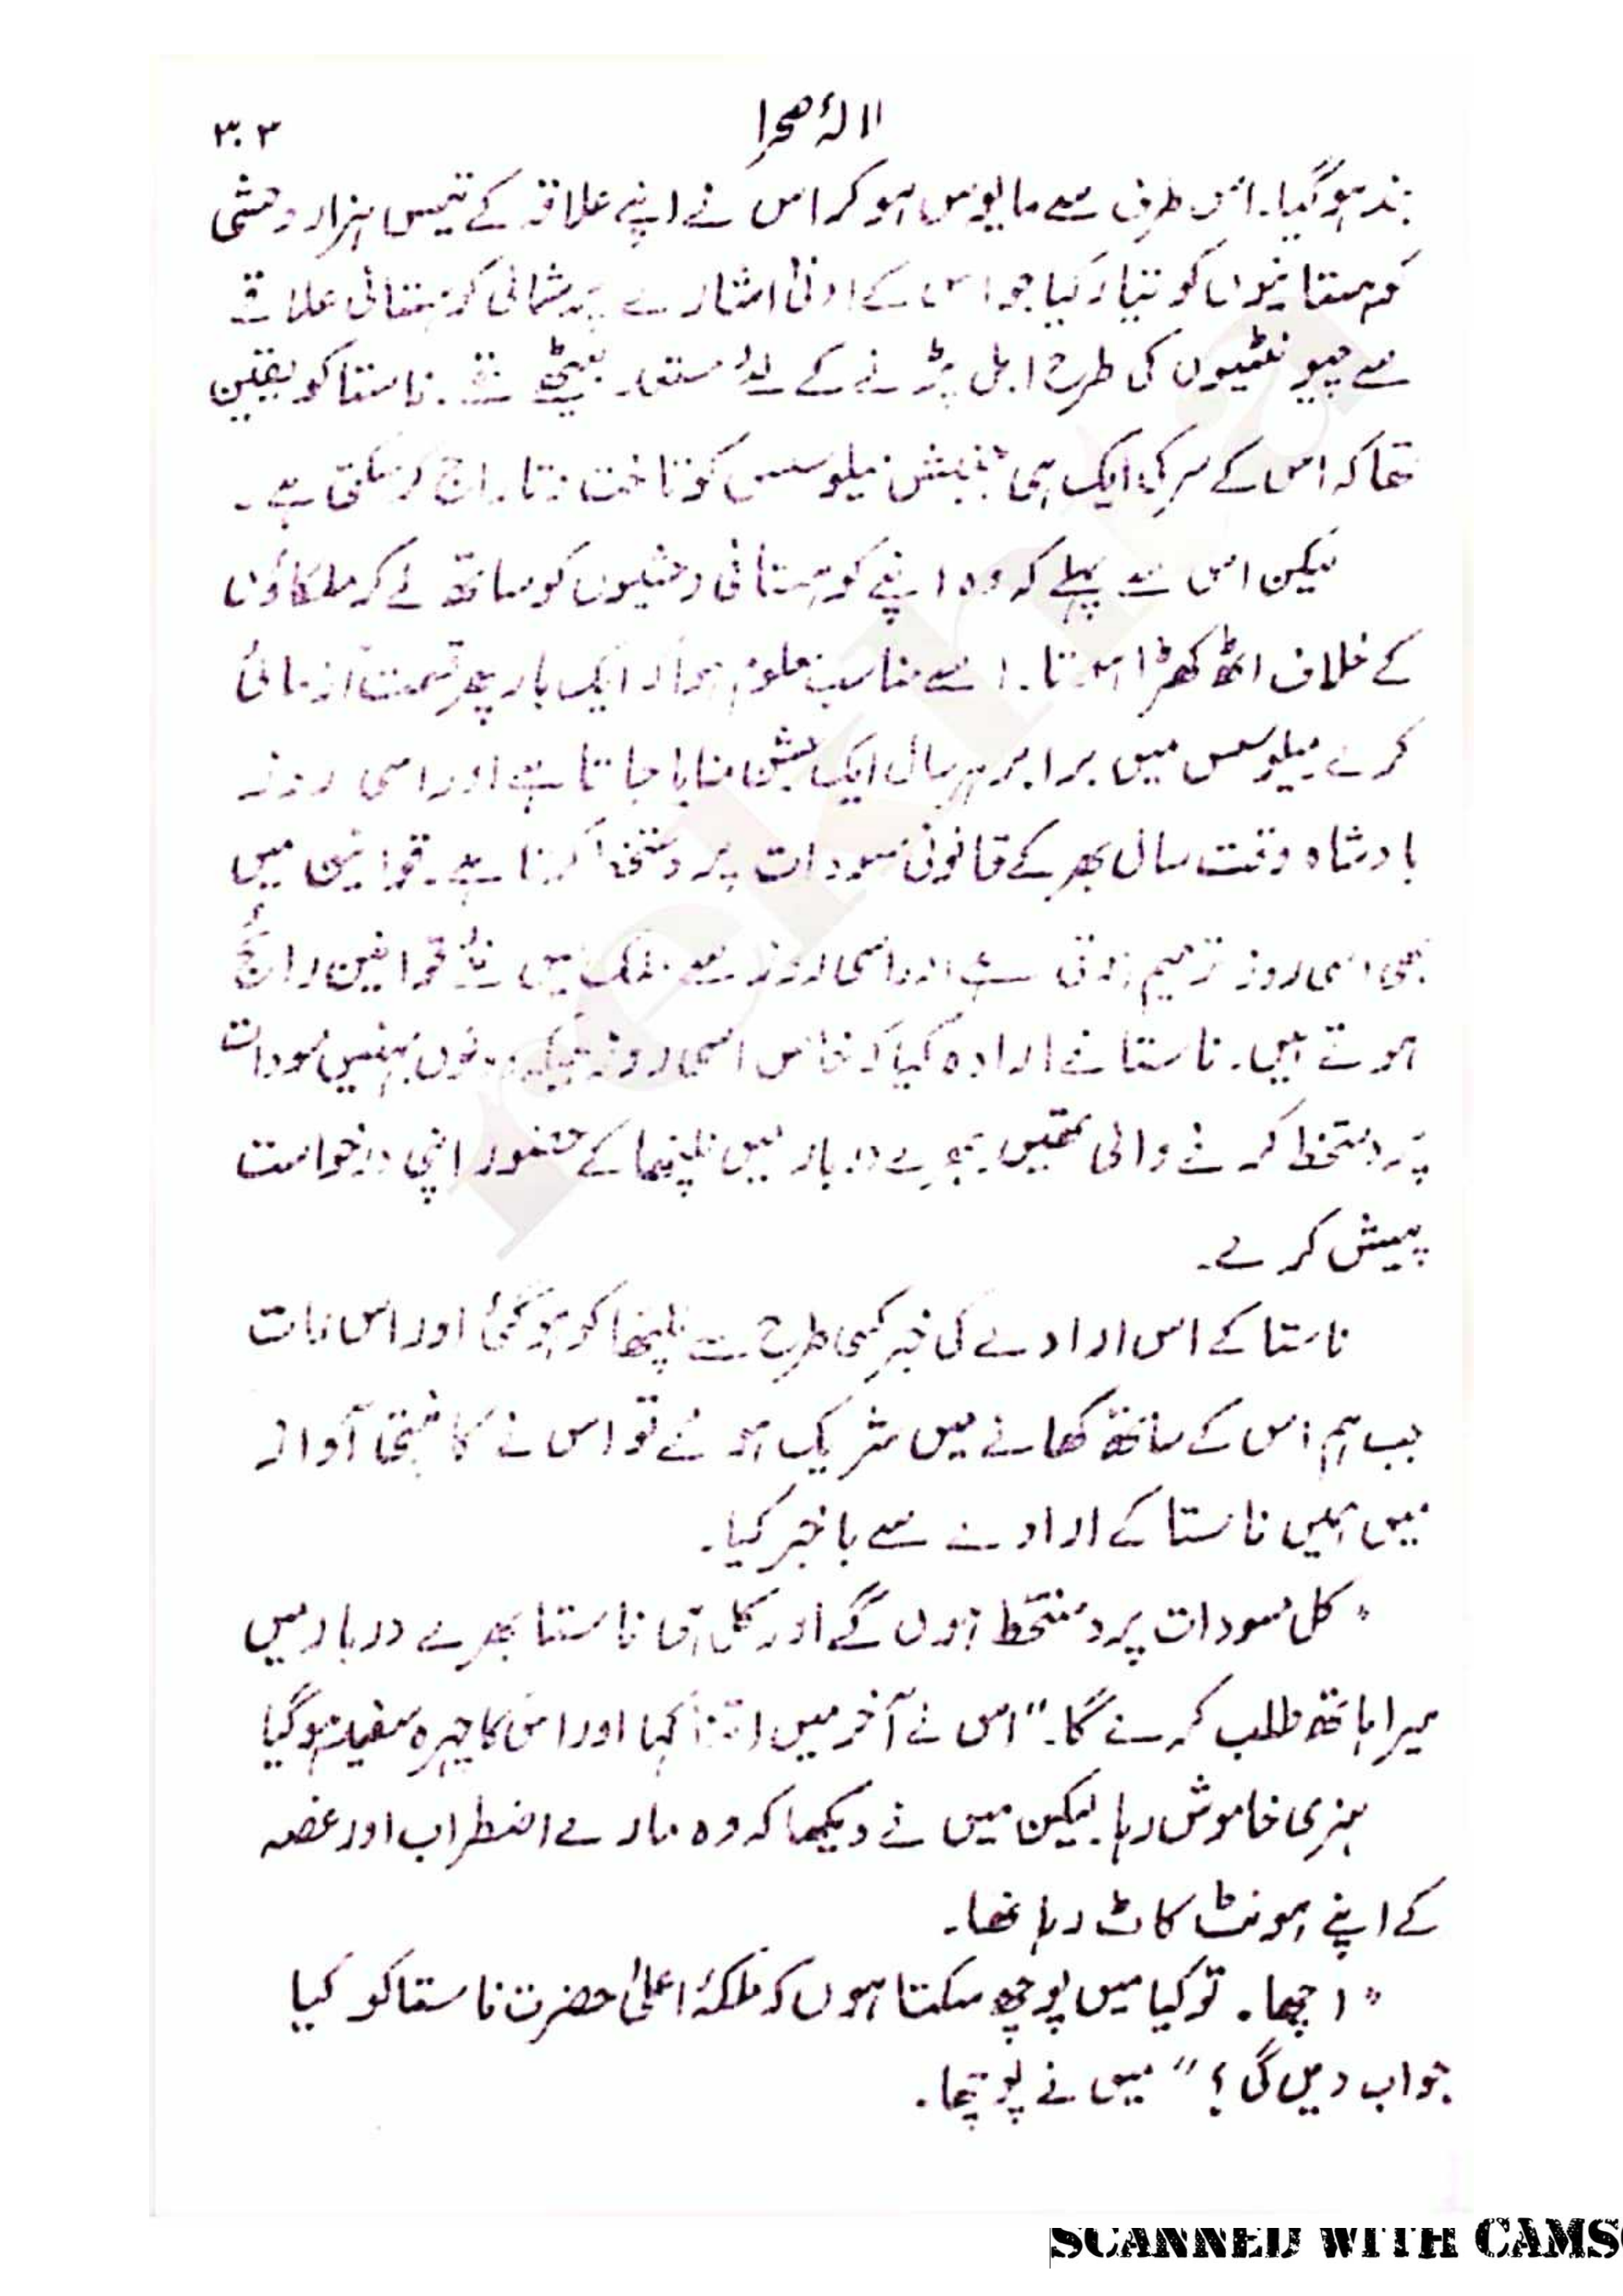 لالۂ صحرا
۳۰۳
بند ہو گیا۔ اس طرف سے مایوس ہو کر اس نے اپنے علاقہ کے تیس ہزار وحشی
کوہستانیوں کو تیار کیا جو اس کے ادنیٰ اشارے پر شمالی کوہستانی علاقے
سے چیونٹیوں کی طرح ابل پڑنے کے لئے مستعد بیٹھے تھے۔ ناستا کو یقین
تھا کہ اس کے سر کی ایک ہی جنبش میلوسس کو تاخت و تاراج کر سکتی ہے۔
لیکن اس سے پہلے کہ وہ اپنے کوہستانی وحشیوں کو ساتھ لے کر ملکاؤں
کے خلاف اٹھ کھڑا ہوتا۔ اسے مناسب معلوم ہوا کہ ایک بار پھر قسمت آزمائی
کرے میلوسس میں برابر ہر سال ایک جشن منایا جاتا ہے اور اسی روز
بادشاہ وقت سال بھر کے قانونی مسودات پر دستخط کرتا ہے۔ قوانین میں
بھی اسی روز ترمیم ہوتی ہے اور اسی روز سے ملک میں نئے قوانین رائج
ہوتے ہیں۔ ناستا نے ارادہ کیا کہ خاص اسی روز جبکہ دونوں بہنیں مسودات
پر دستخط کرنے والی تھیں بھرے دربار میں نلپتھا کے حضور اپنی درخواست
پیش کرے۔
ناستا کے اس ارادے کی خبر کسی طرح سے نلپتھا کو ہو گئی اور اس رات
جب ہم اس کے ساتھ کھانے میں شریک ہوئے تو اس نے کانپتی آواز
میں ہمیں ناستا کے ارادے سے باخبر کیا۔
"کل مسودات پر دستخط ہوں گے اور کل آقا ناستا بھرے دربار میں
میرا ہاتھ طلب کرے گا۔" اس نے آخر میں اتنا کہا اور اس کا چہرہ سفید ہو گیا
ہنری خاموش رہا۔ لیکن میں نے دیکھا کہ وہ مارے اضطراب اور غصہ
کے اپنے ہونٹ کاٹ رہا تھا۔
"اچھا۔ تو کیا میں پوچھ سکتا ہوں کہ ملکۂ اعلیٰ حضرت ناستا کو کیا
جواب دیں گی؟" میں نے پوچھا۔
SCANNED WITH CAMS